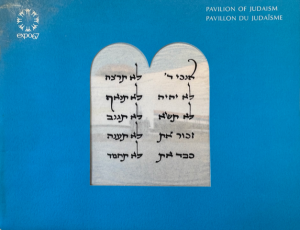 expo67
PAVILION OF JUDAISM
PAVILLON DU JUDAÏSME
אנכי ד'
לא יהיה
לא תשא
זכור את
כבד את
לא תרצח
לא תנאף
לא תגנב
לא תענה
לא תחמד